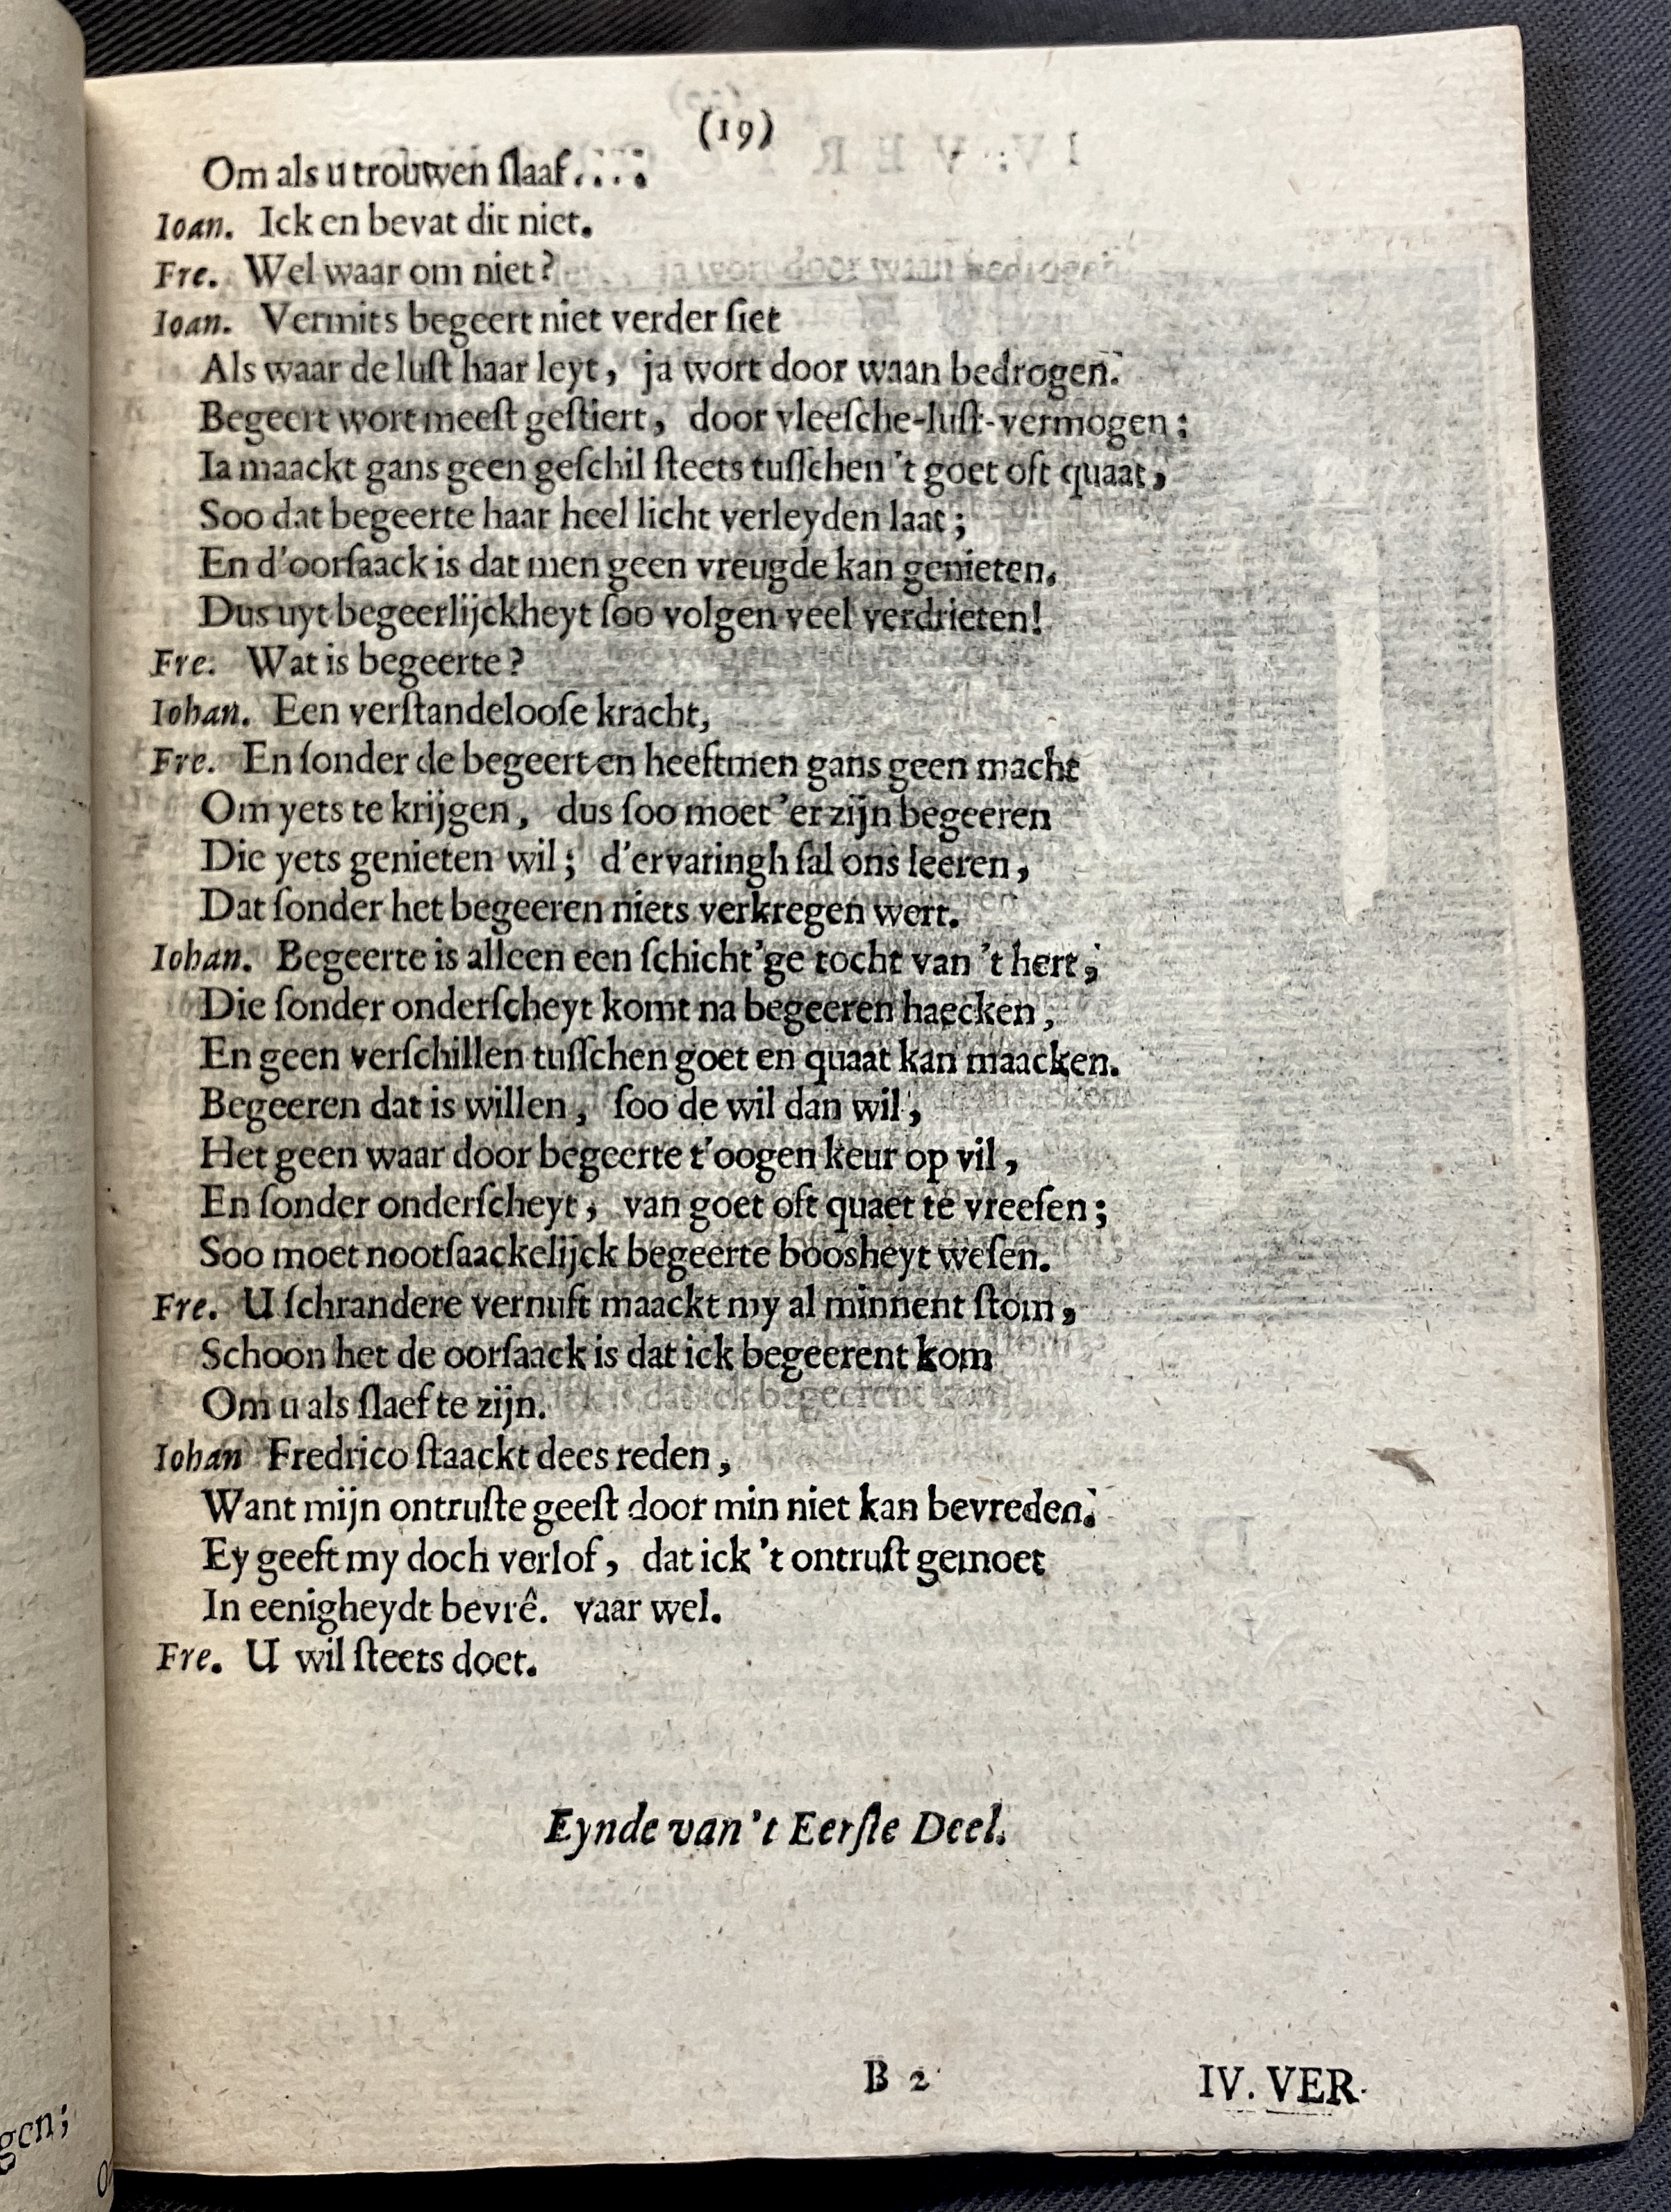 (19)
Om als u trouwen ſlaaf....
Ioan. Ick en bevat dit niet.
Fre. Wel waar om niet?
Ioan. Vermits begeert niet verder ſiet
Als waar de luſt haar leyt, ja wort door waan bedrogen.
Begeert wort meeſt geſtiert, door vleeſche-luſt-vermogen;
Ia maackt gans geen geſchil ſteets tuſſchen 't goet oft quaat,
Soo dat begeerte haar heel licht verleyden laat;
En d'oorſaack is dat men geen vreugde kan genieten.
Dus uyt begeerlijckheyt ſoo volgen veel verdrieten!
Fre. Wat is begeerte?
Iohan. Een verſtandelooſe kracht,
Fre. En ſonder de begeert en heeftmen gans geen macht
Om yets te krijgen, dus ſoo moet 'er zijn begeeren
Die yets genieten wil; d'ervaringh ſal ons leeren,
Dat ſonder het begeeren niets verkregen wert.
Iohan. Begeerte is alleen een ſchicht'ge tocht van 't hert;
Die ſonder onderſcheyt komt na begeeren haecken,
En geen verſchillen tuſſchen goet en quaat kan maacken.
Begeeren dat is willen, ſoo de wil dan wil,
Het geen waar door begeerte t'oogen keur op vil,
En ſonder onderſcheyt, van goet oft quaet te vreeſen;
Soo moet nootſaackelijck begeerte boosheyt weſen.
Fre. U ſchrandere vernuft maackt my al minnent ſtom,
Schoon het de oorſaack is dat ick begeerent kom
Om u als ſlaef te zijn.
Iohan Fredrico ſtaackt dees reden,
Want mijn ontruſte geeſt door min niet kan bevreden.
Ey geeft my doch verlof, dat ick 't ontruſt gemoet
In eenigheydt bevrê. vaar wel.
Fre. U wil ſteets doet.
Eynde van't Eerſte Deel.
B 2
IV. VER-
gen;